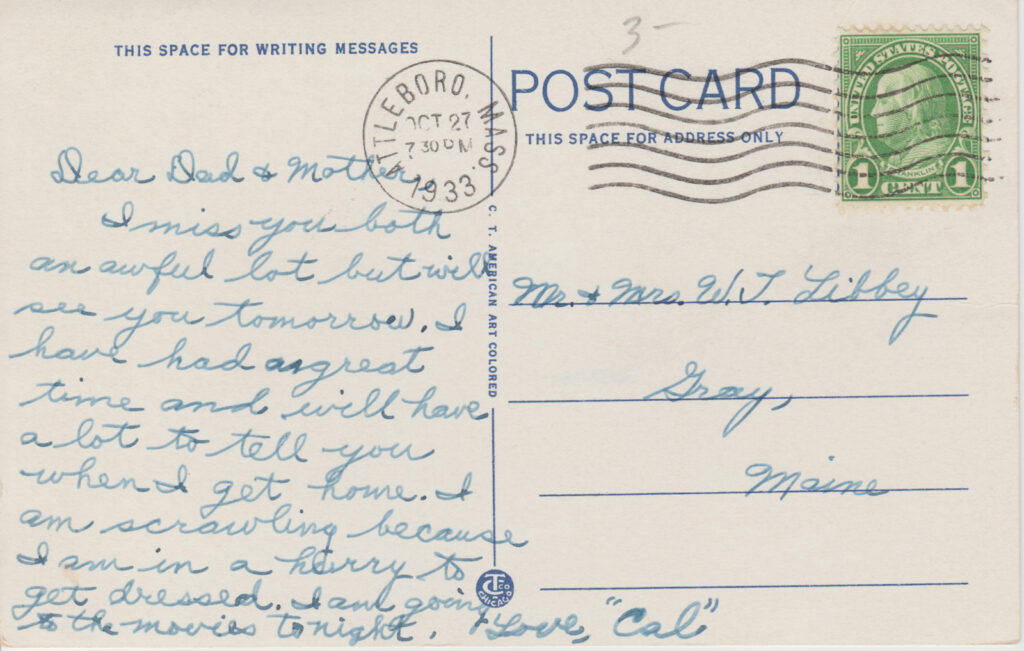 3-
THIS SPACE FOR WRITING MESSAGES
ATTLEBORO, MASS.
OCT 27
7 30 PM
1933
POST CARD
THIS SPACE FOR ADDRESS ONLY
UNITED STATES POSTAGE
FRANKLIN
1 CENT 1
Dear Dad & Mother,
I miss you both
an awful lot but will
see you tomorrow. I
have had a great
time and will have
a lot to tell you
when I get home. I
am scrawling because
I am in a hurry to
get dressed. I am going
to the movies tonight.
Love, "Cal"
C. T. AMERICAN ART COLORED
Mr. & Mrs. W. T. Libbey
Gray,
Maine
CT CO
CHICAGO